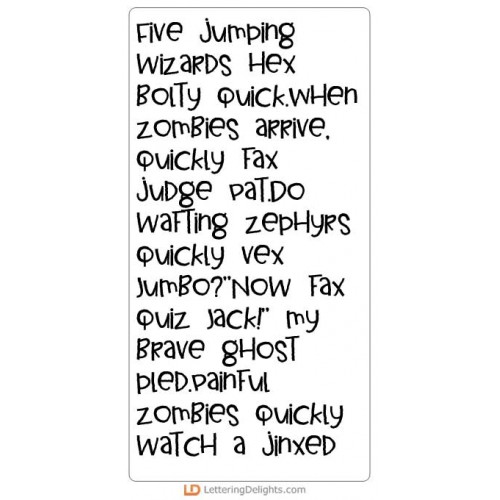 Five jumping
wizards hex
bolty quick.When
zombies arrive,
quickly fax
judge Pat.Do
wafting zephyrs
quickly vex
Jumbo?"Now fax
quiz Jack!" my
brave ghost
pled.Painful
zombies quickly
watch a jinxed
LD LetteringDelights.com